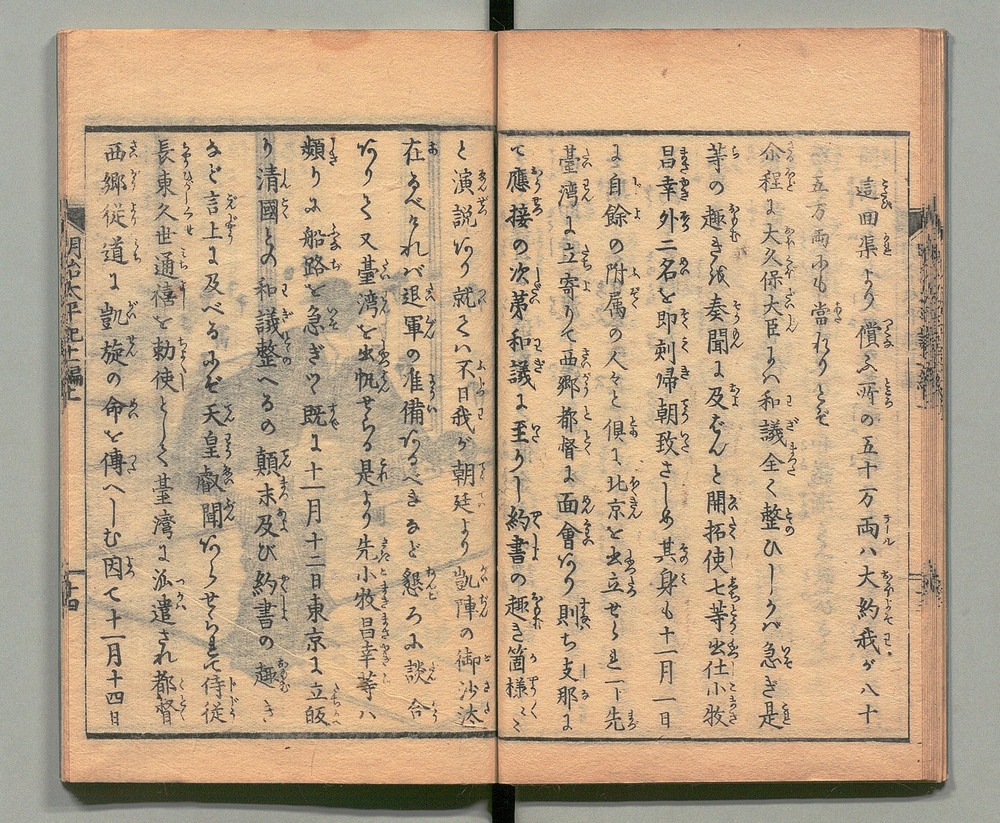 這田渠より償ふ所の五十万両ハ大約我が八十
五万両にも當れりとぞ
尒程に大久保大臣にハ和議全く整ひしかバ急ぎ是
等の趣きを奏聞に及ばんと開拓使七等出仕小牧
昌幸外二名を即刻帰朝致さしめ其身も十一月一日
に自餘の附属の人々と倶に北京を出立せられ一ト先
臺湾に立寄りて西郷都督に面會あり則ち支那に
て應接の次第和議に至りし約書の趣き箇様々々
と演説あり就てハ不日我が朝廷より凱陣の御沙汰
在るべけれバ退軍の准備あるべきなど懇ろに談合
ありて又臺湾を出帆せらる是より先小牧昌幸等ハ
頻りに船路を急ぎつ既に十一月十二日東京に立皈
り清國との和議整へるの顛末及び約書の趣き
など言上に及べるにぞ天皇叡聞あらせられて侍従
長東久世通禧を勅使として臺湾に派遣され都督
西郷従道に凱旋の命を傳へしむ因て十一月十四日
明治太平記十一編上
十四